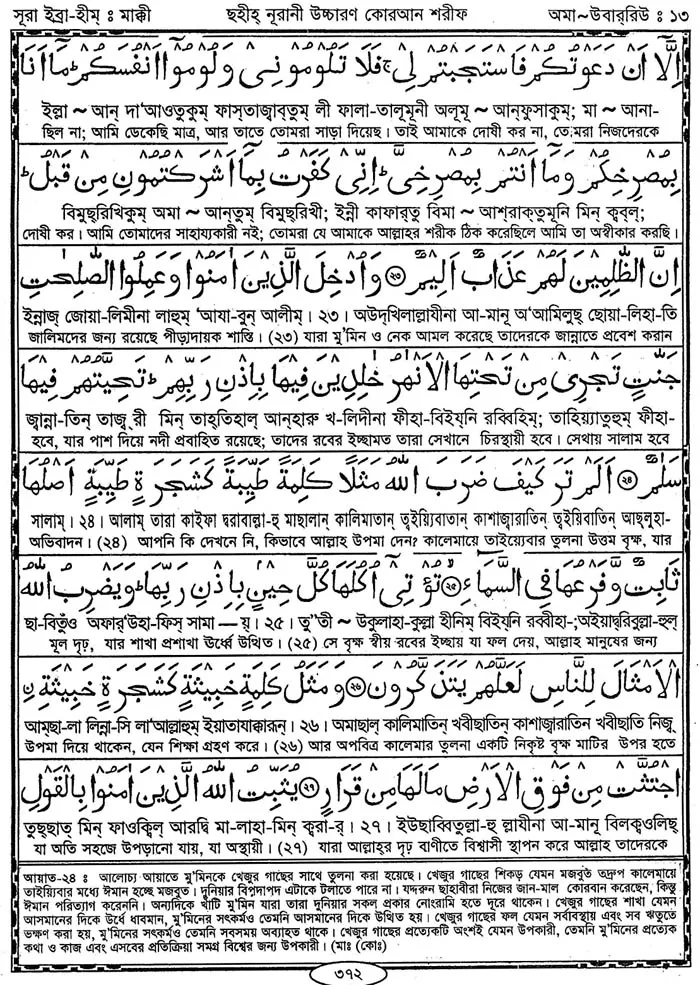 সূরা ইব্রা-হীম্ : মাক্কী
ছহীহ্ নূরানী উচ্চারণ কোরআন শরীফ
অমা~উবাব্রিউ : ১৩
اِلَّاۤ اَنْ دَعَوْتُكُمْ فَاسْتَجَبْتُمْ لِیْ ۚ فَلَا تَلُوْمُوْنِیْ وَلُوْمُوْۤا اَنْفُسَكُمْ ؕ مَاۤ اَنَا
ইল্লা ~ আন্ দা'আওতুকুম্ ফাস্তাজ্বাব্তুম্ লী ফালা-তালূমূনী অলূমূ ~ আন্ফুসাকুম্; মা ~ আনা-
ছিল না; আমি ডেকেছি মাত্র, আর তাতে তোমরা সাড়া দিয়েছ। তাই আমাকে দোষী কর না, তোমরা নিজদেরকে
بِمُصْرِخِكُمْ وَمَاۤ اَنْتُمْ بِمُصْرِخِیَّ ؕ اِنِّیْ كَفَرْتُ بِمَاۤ اَشْرَكْتُمُوْنِ مِنْ قَبْلُ ؕ
বিমুছ্রিখিকুম্ অমা ~ আন্তুম্ বিমুছ্রিখী; ইন্নী কাফার্তু বিমা ~ আশ্রাক্তুমূনি মিন্ ক্বব্ল্;
দোষী কর। আমি তোমাদের সাহায্যকারী নই; তোমরা যে আমাকে আল্লাহর শরীক ঠিক করেছিলে আমি তা অস্বীকার করছি।
اِنَّ الظّٰلِمِیْنَ لَهُمْ عَذَابٌ اَلِیْمٌ ۝۲۳ وَاُدْخِلَ الَّذِیْنَ اٰمَنُوْا وَعَمِلُوا الصّٰلِحٰتِ
ইন্নাজ্ জোয়া-লিমীনা লাহুম্ 'আযা-বুন্ আলীম্। ২৩। অউদ্খিলাল্লাযীনা আ-মানূ অ'আমিলুছ্ ছোয়া-লিহা-তি
জালিমদের জন্য রয়েছে পীড়াদায়ক শাস্তি। (২৩) যারা মু'মিন ও নেক আমল করেছে তাদেরকে জান্নাতে প্রবেশ করান
جَنّٰتٍ تَجْرِیْ مِنْ تَحْتِهَا الْاَنْهٰرُ خٰلِدِیْنَ فِیْهَا بِاِذْنِ رَبِّهِمْ ؕ تَحِیَّتُهُمْ فِیْهَا
জ্বান্না-তিন্ তাজ্ব্রী মিন্ তাহ্তিহাল্ আন্হারু খ-লিদীনা ফীহা-বিইয্নি রব্বিহিম্; তাহিয়্যাতুহুম্ ফীহা-
হবে, যার পাশ দিয়ে নদী প্রবাহিত রয়েছে; তাদের রবের ইচ্ছামত তারা সেখানে চিরস্থায়ী হবে। সেথায় সালাম হবে
سَلٰمٌ ۝۲۴ اَلَمْ تَرَ كَیْفَ ضَرَبَ اللّٰهُ مَثَلًا كَلِمَةً طَیِّبَةً كَشَجَرَةٍ طَیِّبَةٍ اَصْلُهَا
সালাম্। ২৪। আলাম্ তারা কাইফা দ্বরাবাল্লা-হু মাছালান্ কালিমাতান্ ত্বইয়্যিবাতান্ কাশাজ্বারাতিন্ ত্বইয়িবাতিন্ আছ্লুহা-
অভিবাদন। (২৪) আপনি কি দেখনে নি, কিভাবে আল্লাহ উপমা দেন? কালেমায়ে তাইয়্যেবার তুলনা উত্তম বৃক্ষ, যার
ثَابِتٌ وَّفَرْعُهَا فِی السَّمَآءِ ۝۲۵ تُؤْتِیْۤ اُكُلَهَا كُلَّ حِیْنٍۭ بِاِذْنِ رَبِّهَا ؕ وَیَضْرِبُ اللّٰهُ
ছা-বিতুঁও অফার্'উহা-ফিস্ সামা — য়্। ২৫। তু"তী ~ উকুলাহা-কুল্লা হীনিম্ বিইয্নি রব্বীহা-;অইয়াদ্ব্রিবুল্লা-হুল্
মূল দৃঢ়, যার শাখা প্রশাখা ঊর্ধ্বে উত্থিত। (২৫) সে বৃক্ষ স্বীয় রবের ইচ্ছায় যা ফল দেয়, আল্লাহ মানুষের জন্য
الْاَمْثَالَ لِلنَّاسِ لَعَلَّهُمْ یَتَذَكَّرُوْنَ ۝۲۶ وَمَثَلُ كَلِمَةٍ خَبِیْثَةٍ كَشَجَرَةٍ خَبِیْثَةِ نِ
আম্ছা-লা লিন্না-সি লা'আল্লাহুম্ ইয়াতাযাক্কারূন্। ২৬। অমাছালু কালিমাতিন্ খবীছাতিন্ কাশাজ্বারাতিন্ খবীছাতি নিজ্বু
উপমা দিয়ে থাকেন, যেন শিক্ষা গ্রহণ করে। (২৬) আর অপবিত্র কালেমার তুলনা একটি নিকৃষ্ট বৃক্ষ মাটির উপর হতে
اجْتُثَّتْ مِنْ فَوْقِ الْاَرْضِ مَا لَهَا مِنْ قَرَارٍ ۝۲۷ یُثَبِّتُ اللّٰهُ الَّذِیْنَ اٰمَنُوْا بِالْقَوْلِ
তুছ্ছাত্ মিন্ ফাওক্বিল্ আরদ্বি মা-লাহা-মিন্ ক্বরা-র্। ২৭। ইউছাব্বিতুল্লা-হু ল্লাযীনা আ-মানূ বিল্ক্বওলিছ্
যা অতি সহজে উপড়ানো যায়, যা অস্থায়ী। (২৭) যারা আল্লাহ্র দৃঢ় বাণীতে বিশ্বাসী স্থাপন করে আল্লাহ তাদেরকে
আয়াত-২৪ : আলোচ্য আয়াতে মু'মিনকে খেজুর গাছের সাথে তুলনা করা হয়েছে। খেজুর গাছের শিকড় যেমন মজবুত তদ্রূপ কালেমায়ে
তাইয়্যিবার মধ্যে ঈমান হচ্ছে মজবুত। দুনিয়ার বিপদাপদ এটাকে টলাতে পারে না। যদ্দরুন ছাহাবীরা নিজের জান-মাল কোরবান করেছেন, কিন্তু
ঈমান পরিত্যাগ করেননি। অন্যদিকে খাঁটি মু'মিন যারা তারা দুনিয়ার সকল প্রকার নোংরামি হতে দূরে থাকেন। খেজুর গাছের শাখা যেমন
আসমানের দিকে উর্ধে ধাবমান, মু'মিনের সৎকর্মও তেমনি আসমানের দিকে উত্থিত হয়। খেজুর গাছের ফল যেমন সর্বাবস্থায় এবং সব ঋতুতে
ভক্ষণ করা হয়, মু'মিনের সৎকর্মও তেমনি সবসময় অব্যাহত থাকে। খেজুর গাছের প্রত্যেকটি অংশই যেমন উপকারী, তেমনি মু'মিনের প্রত্যেক
কথা ও কাজ এবং এসবের প্রতিক্রিয়া সমগ্র বিশ্বের জন্য উপকারী। (মাঃ কোঃ)
৩৭২